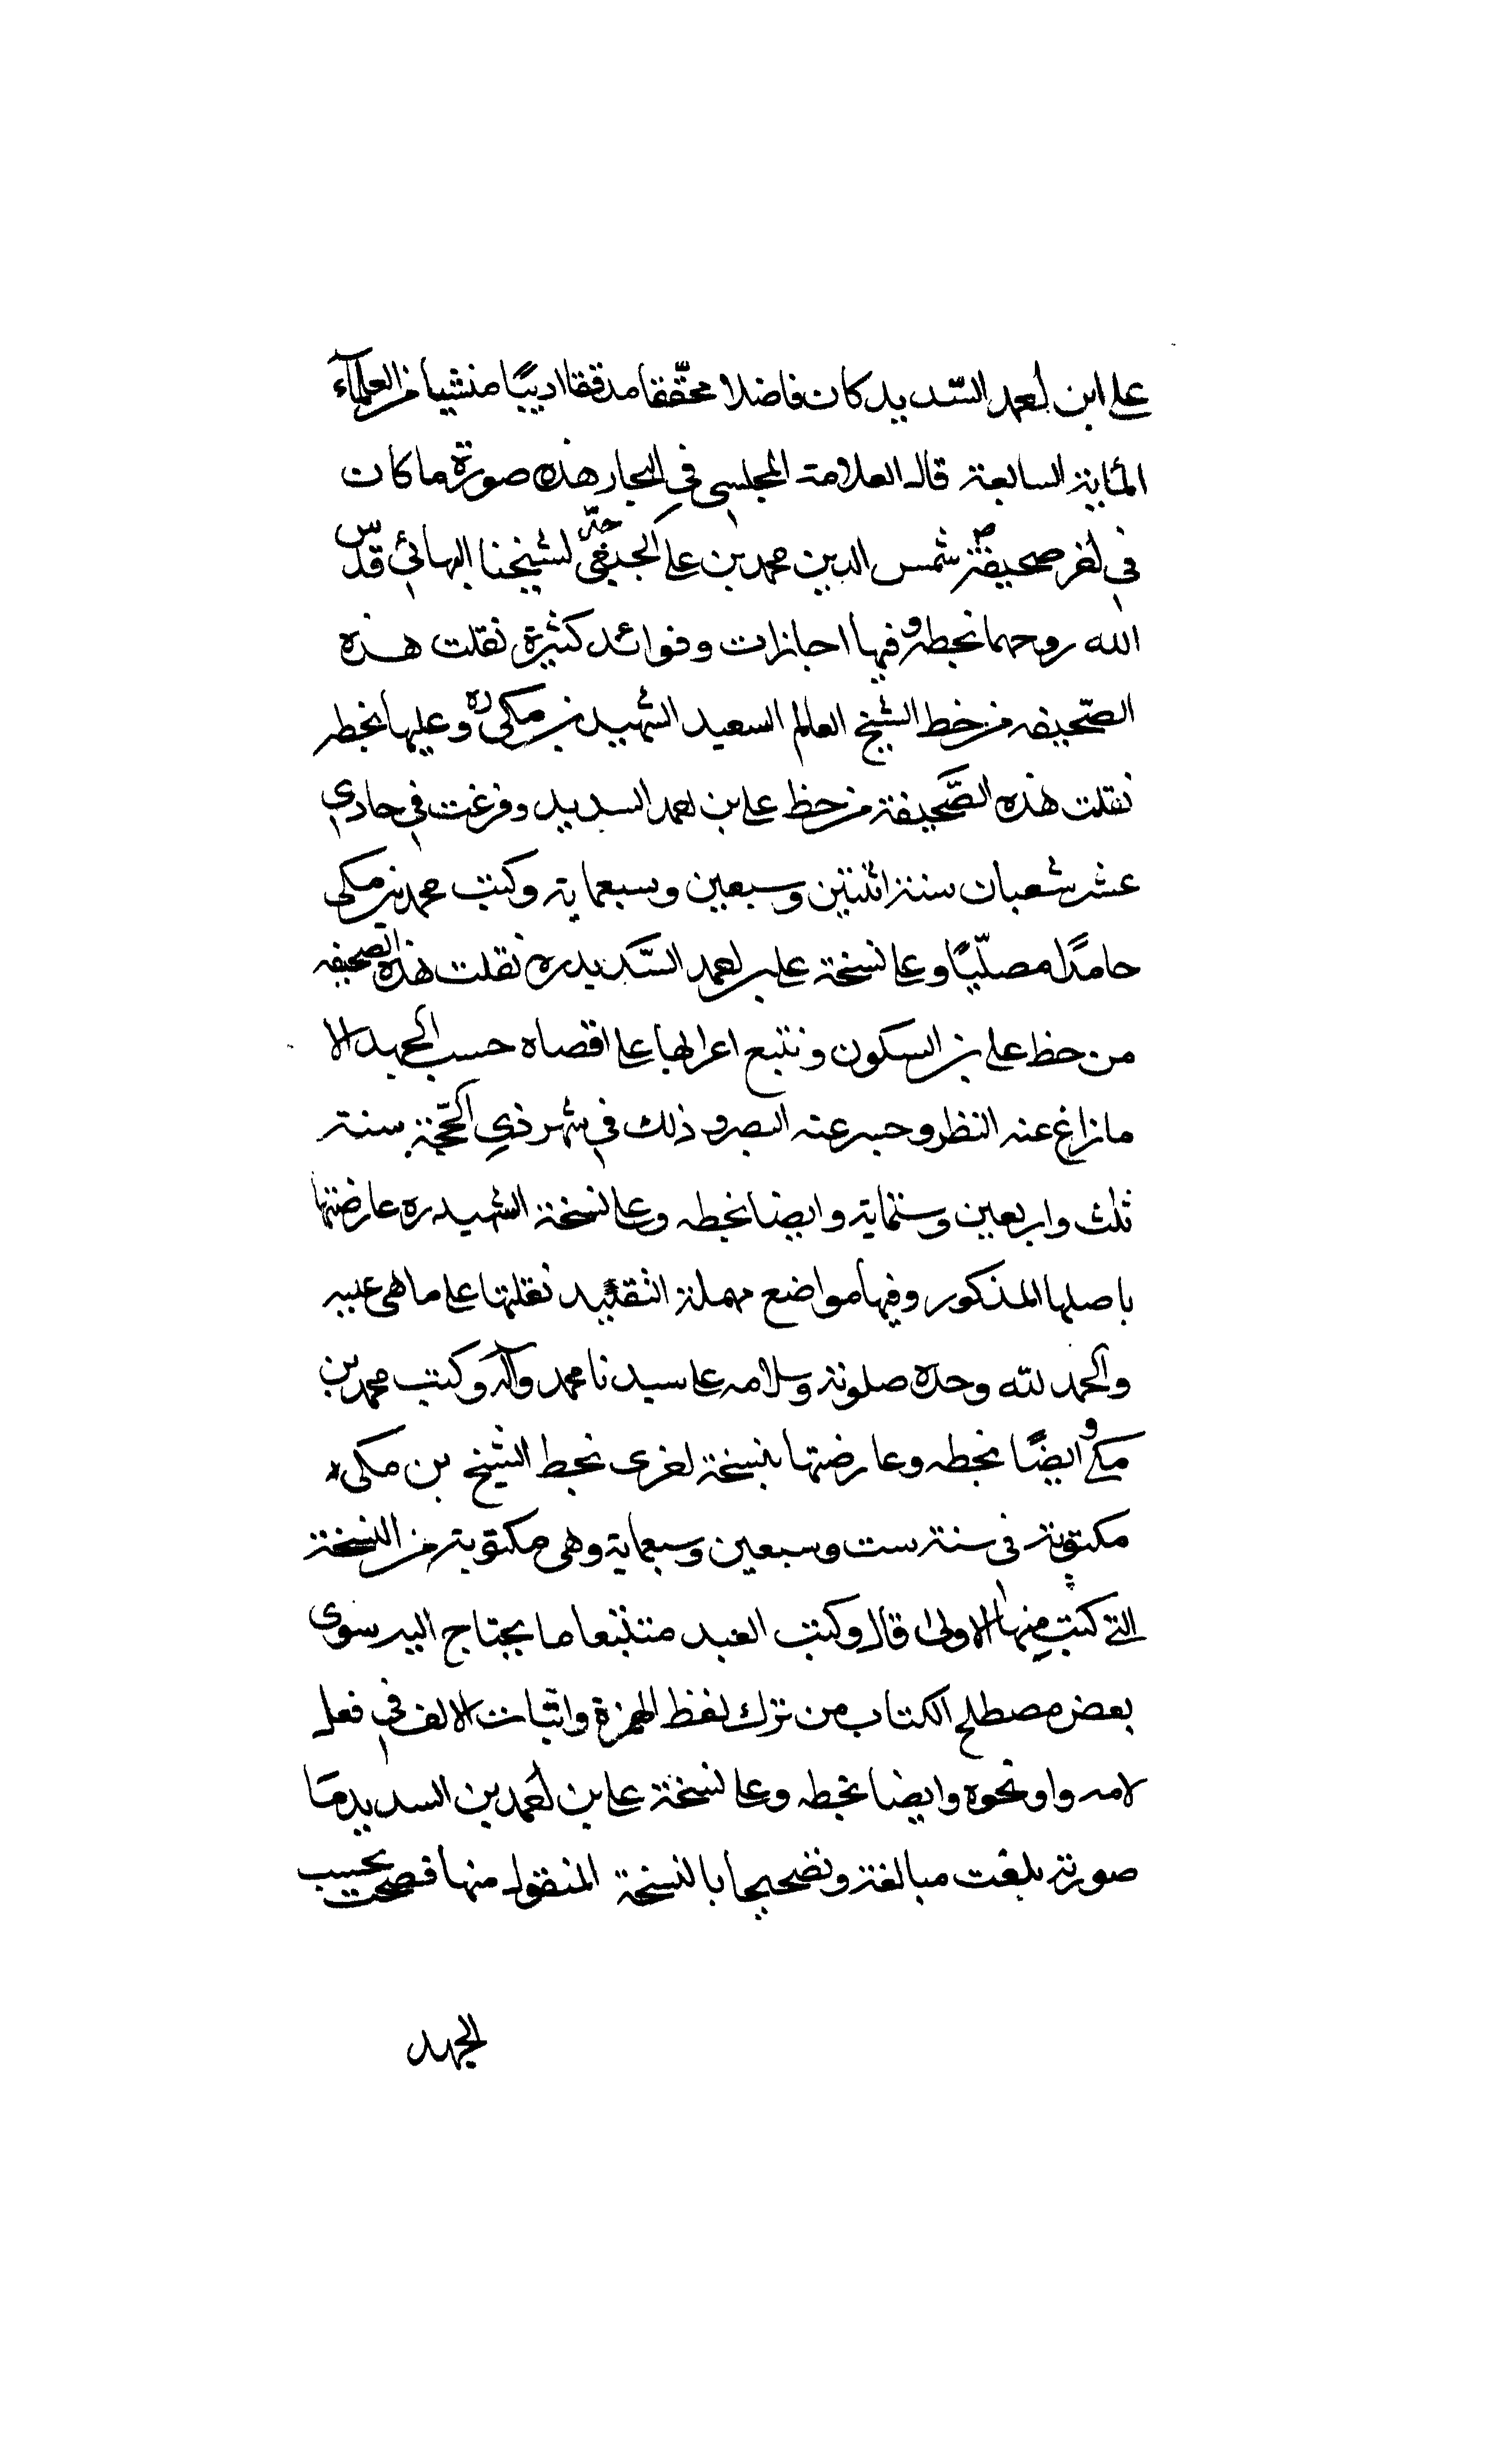 علي ابن احمد السّديد كان فاضلا محقّقا مدققا اديبًا منشيا من العلمآء
المأية السابعة قال العلامة المجلسي في البحار هذه صورة ما كان
في اخر صحيفة شمس الدين محمد بن علي الجبعي جدّ لشيخنا البهائي قدّس
الله روحهما بخطه وفيها اجازات وفوائد كثيرة نقلت هذه
الصّحيفه من خط الشيخ العالم السعيد الشهيد بن مكي ره وعليها بخطه
نقلت هذه الصَّحيفة من خط علي بن احمد السديد وفرغت في حادي
عشر شعبان سنة اثنتين وسبعين وسبعماية وكتب محمد بن مكي
حامدًا مصلّيًا وعلى نسخة علي بن احمد السَّديد ره نقلت هذه الصحيفه
من خط علي بن السكون وتتبع اعرابها على اقصاه حسب الجهد الا
ما زاغ عنه النظر وحسر عنه البصر وذلك في شهر ذي الحّجة سنة
ثلث واربعين وستماية وايضا بخطه وعلى نسخة الشهيد ره عارضتها
باصلها المذكور وفيها مواضع مهملة التقييد نقلتها على ما هي عليه
والحمد لله وحده صلوته وسلامه على سيدنا محمد وآله وكتب محمد بن
مكي وايضًا بخطه وعارضتها بنسخة اخرى بخط الشيخ بن مكي ره
مكتوبة في سنة ست وسبعين وسبعماية وهي مكتوبة من النسخة
التي كتبت منها الاولى قال وكتب العبد متتبعا ما يحتاج اليه سوى
بعض مصطلح الكتاب من ترك لفظ الهمزة واثبات الالف في فعل
لامه واو ونحوه وايضا بخطه وعلى نسخة علي بن احمد بن السديد ما
صورته بلغت مبالغة وتصحيحا بالنسخة المنقول منها فصحت بحسب
الجهد